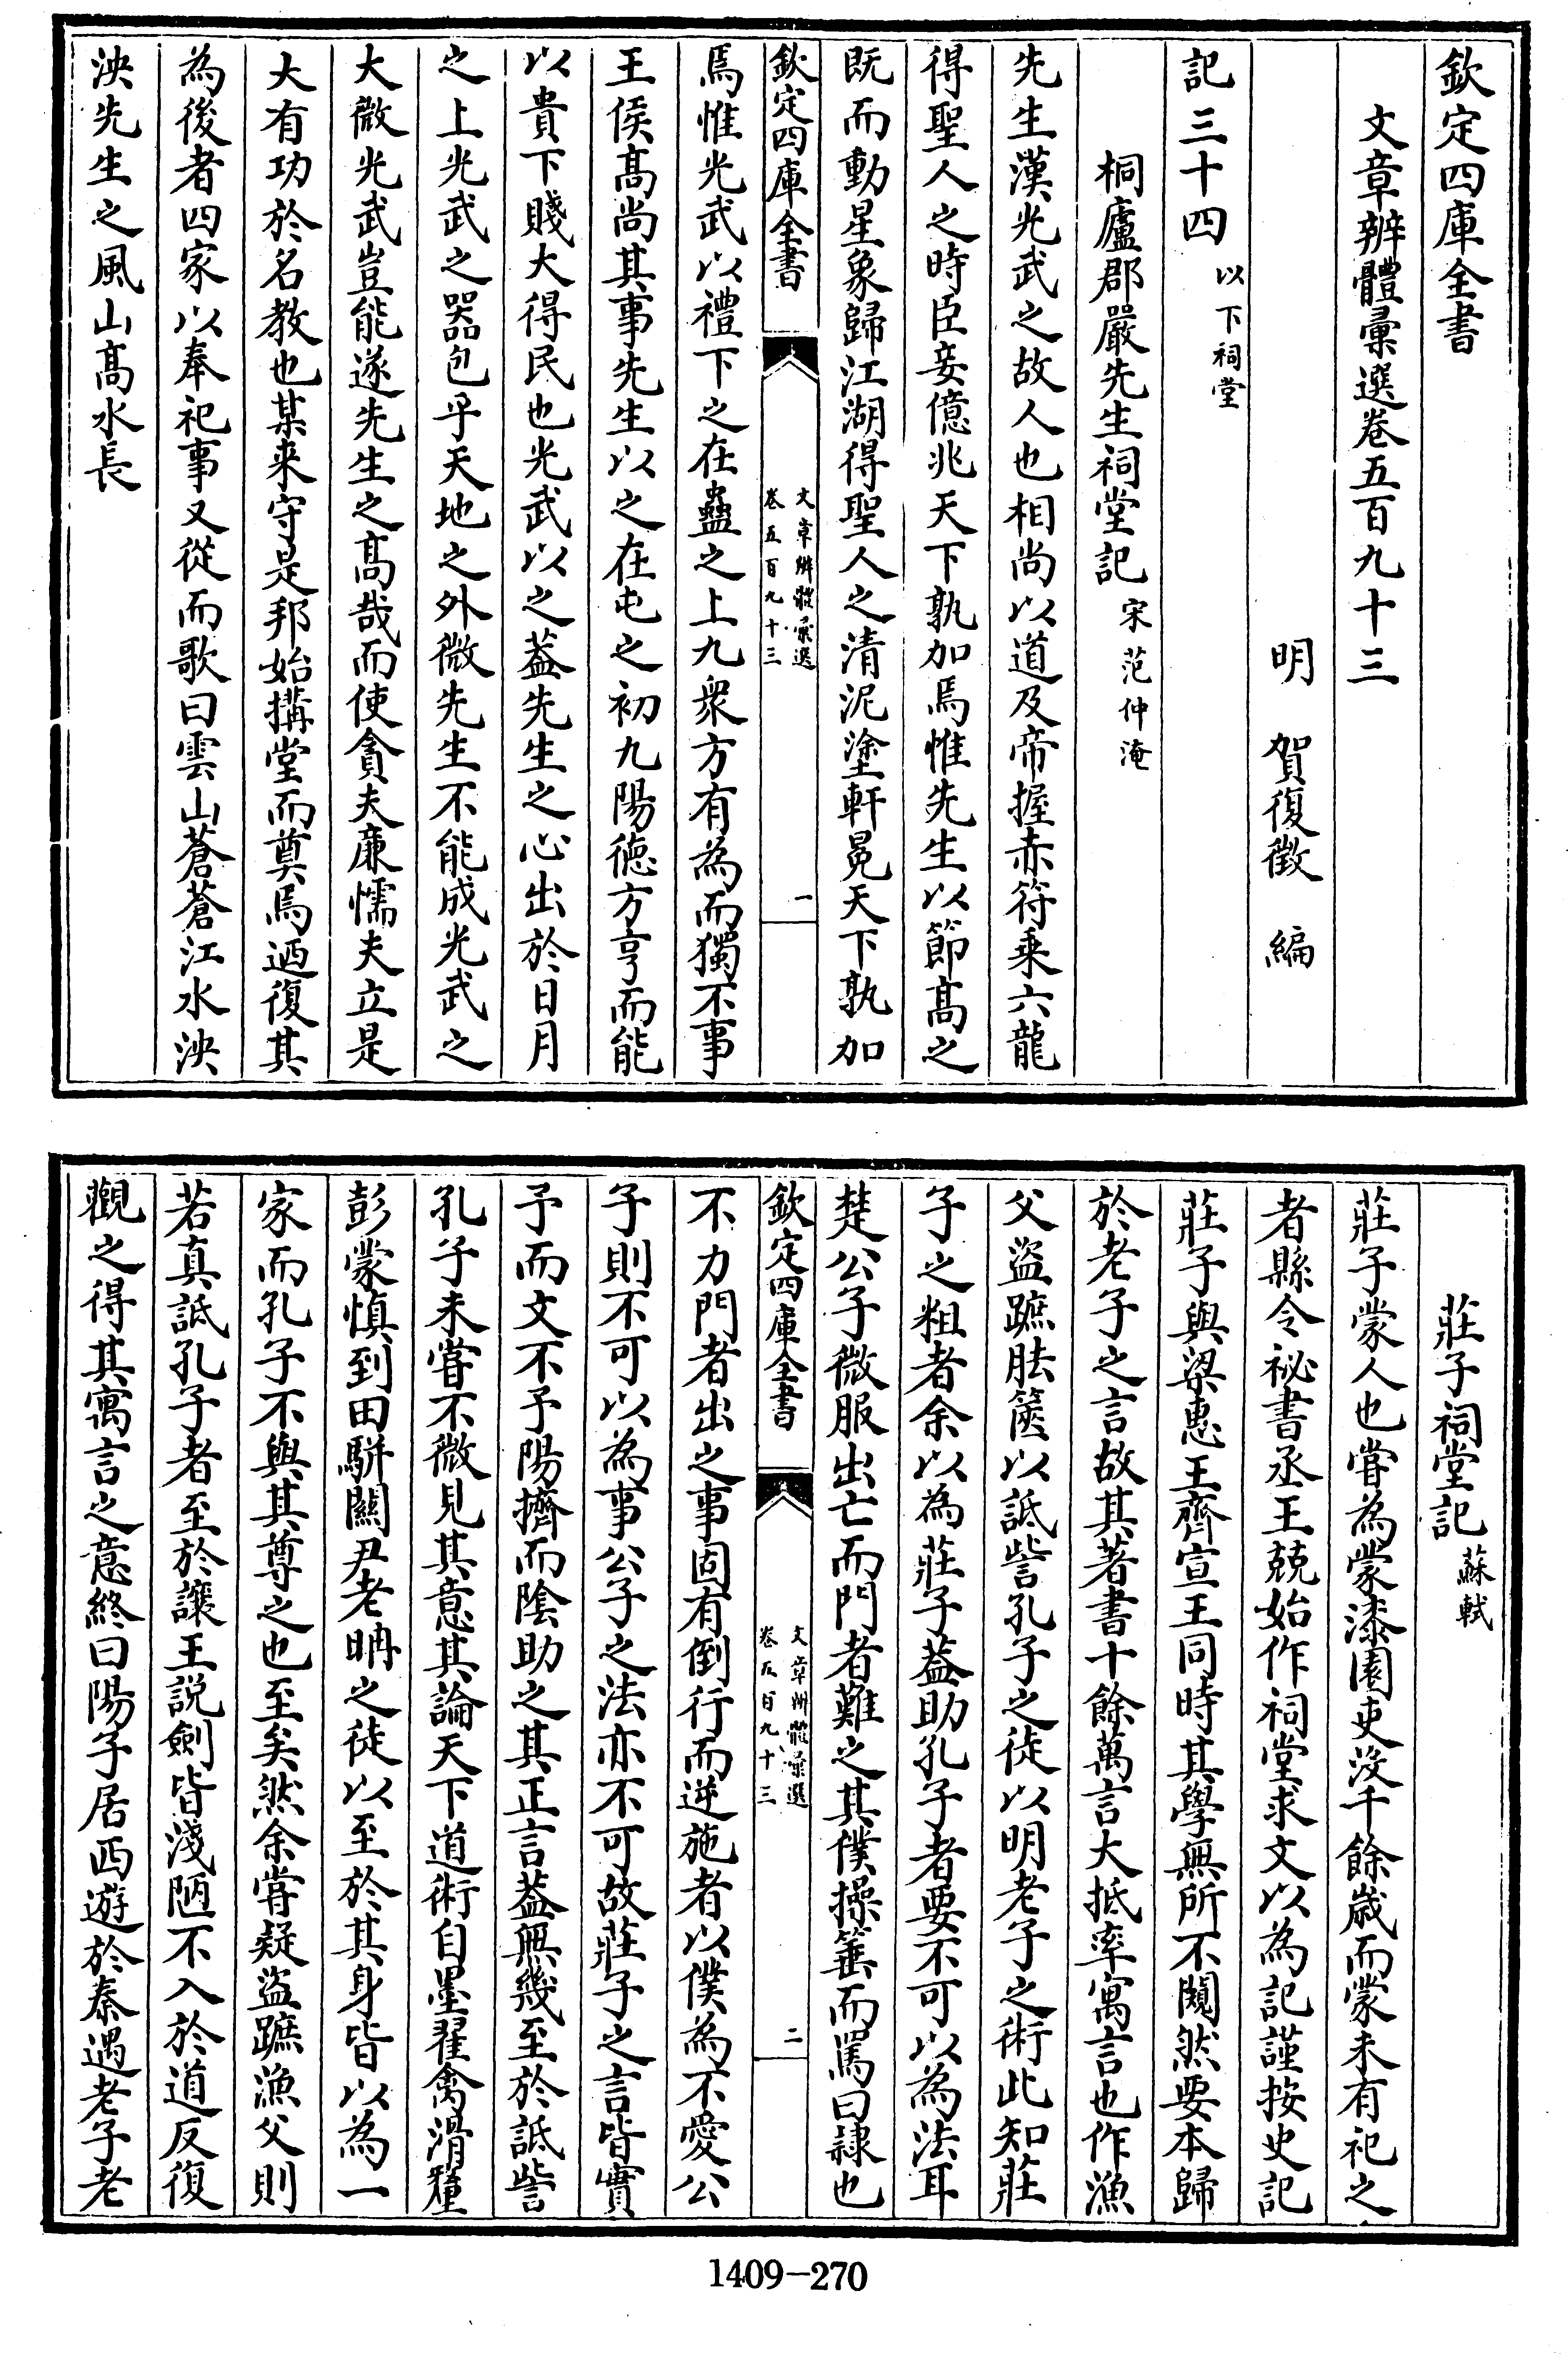 欽定四庫全書
文章辨體彙選卷五百九十三
明　賀復徵　編
記三十四以下祠堂
桐廬郡嚴先生祠堂記宋范仲淹
先生漢光武之故人也相尚以道及帝握赤符乗六龍
得聖人之時臣妾億兆天下孰加焉惟先生以節髙之
既而動星象歸江湖得聖人之清泥塗軒冕天下孰加
欽定四庫全書
文章辨體彙選
卷五百九十三
一
焉惟光武以禮下之在蠱之上九衆方有為而獨不事
王侯髙尚其事先生以之在屯之初九陽德方亨而能
以貴下賤大得民也光武以之葢先生之心出於日月
之上光武之器包乎天地之外微先生不能成光武之
大微光武豈能遂先生之髙哉而使貪夫廉懦夫立是
大有功於名教也某来守是邦始搆堂而奠焉迺復其
為後者四家以奉祀事又從而歌曰雲山蒼蒼江水泱
泱先生之風山髙水長
莊子祠堂記蘇軾
莊子蒙人也嘗為蒙漆園吏沒千餘歲而蒙未有祀之
者縣令祕書丞王兢始作祠堂求文以為記謹按史記
莊子與梁惠王齊宣王同時其學無所不闚然要本歸
於老子之言故其著書十餘萬言大抵率寓言也作漁
父盜蹠胠篋以詆訾孔子之徒以明老子之術此知莊
子之粗者余以為莊子葢助孔子者要不可以為法耳
楚公子微服出亡而門者難之其僕操箠而罵曰隷也
欽定四庫全書
文章辨體彙選
卷五百九十三
二
不力門者出之事固有倒行而逆施者以僕為不愛公
子則不可以為事公子之法亦不可故莊子之言皆實
予而文不予陽擠而陰助之其正言葢無幾至於詆訾
孔子未嘗不微見其意其論天下道術自墨翟禽滑釐
彭蒙慎到田駢關尹老聃之徒以至於其身皆以為一
家而孔子不與其尊之也至矣然余嘗疑盜蹠漁父則
若真詆孔子者至於讓王説劍皆淺陋不入於道反復
觀之得其寓言之意終曰陽子居西遊於秦遇老子老
1409-270